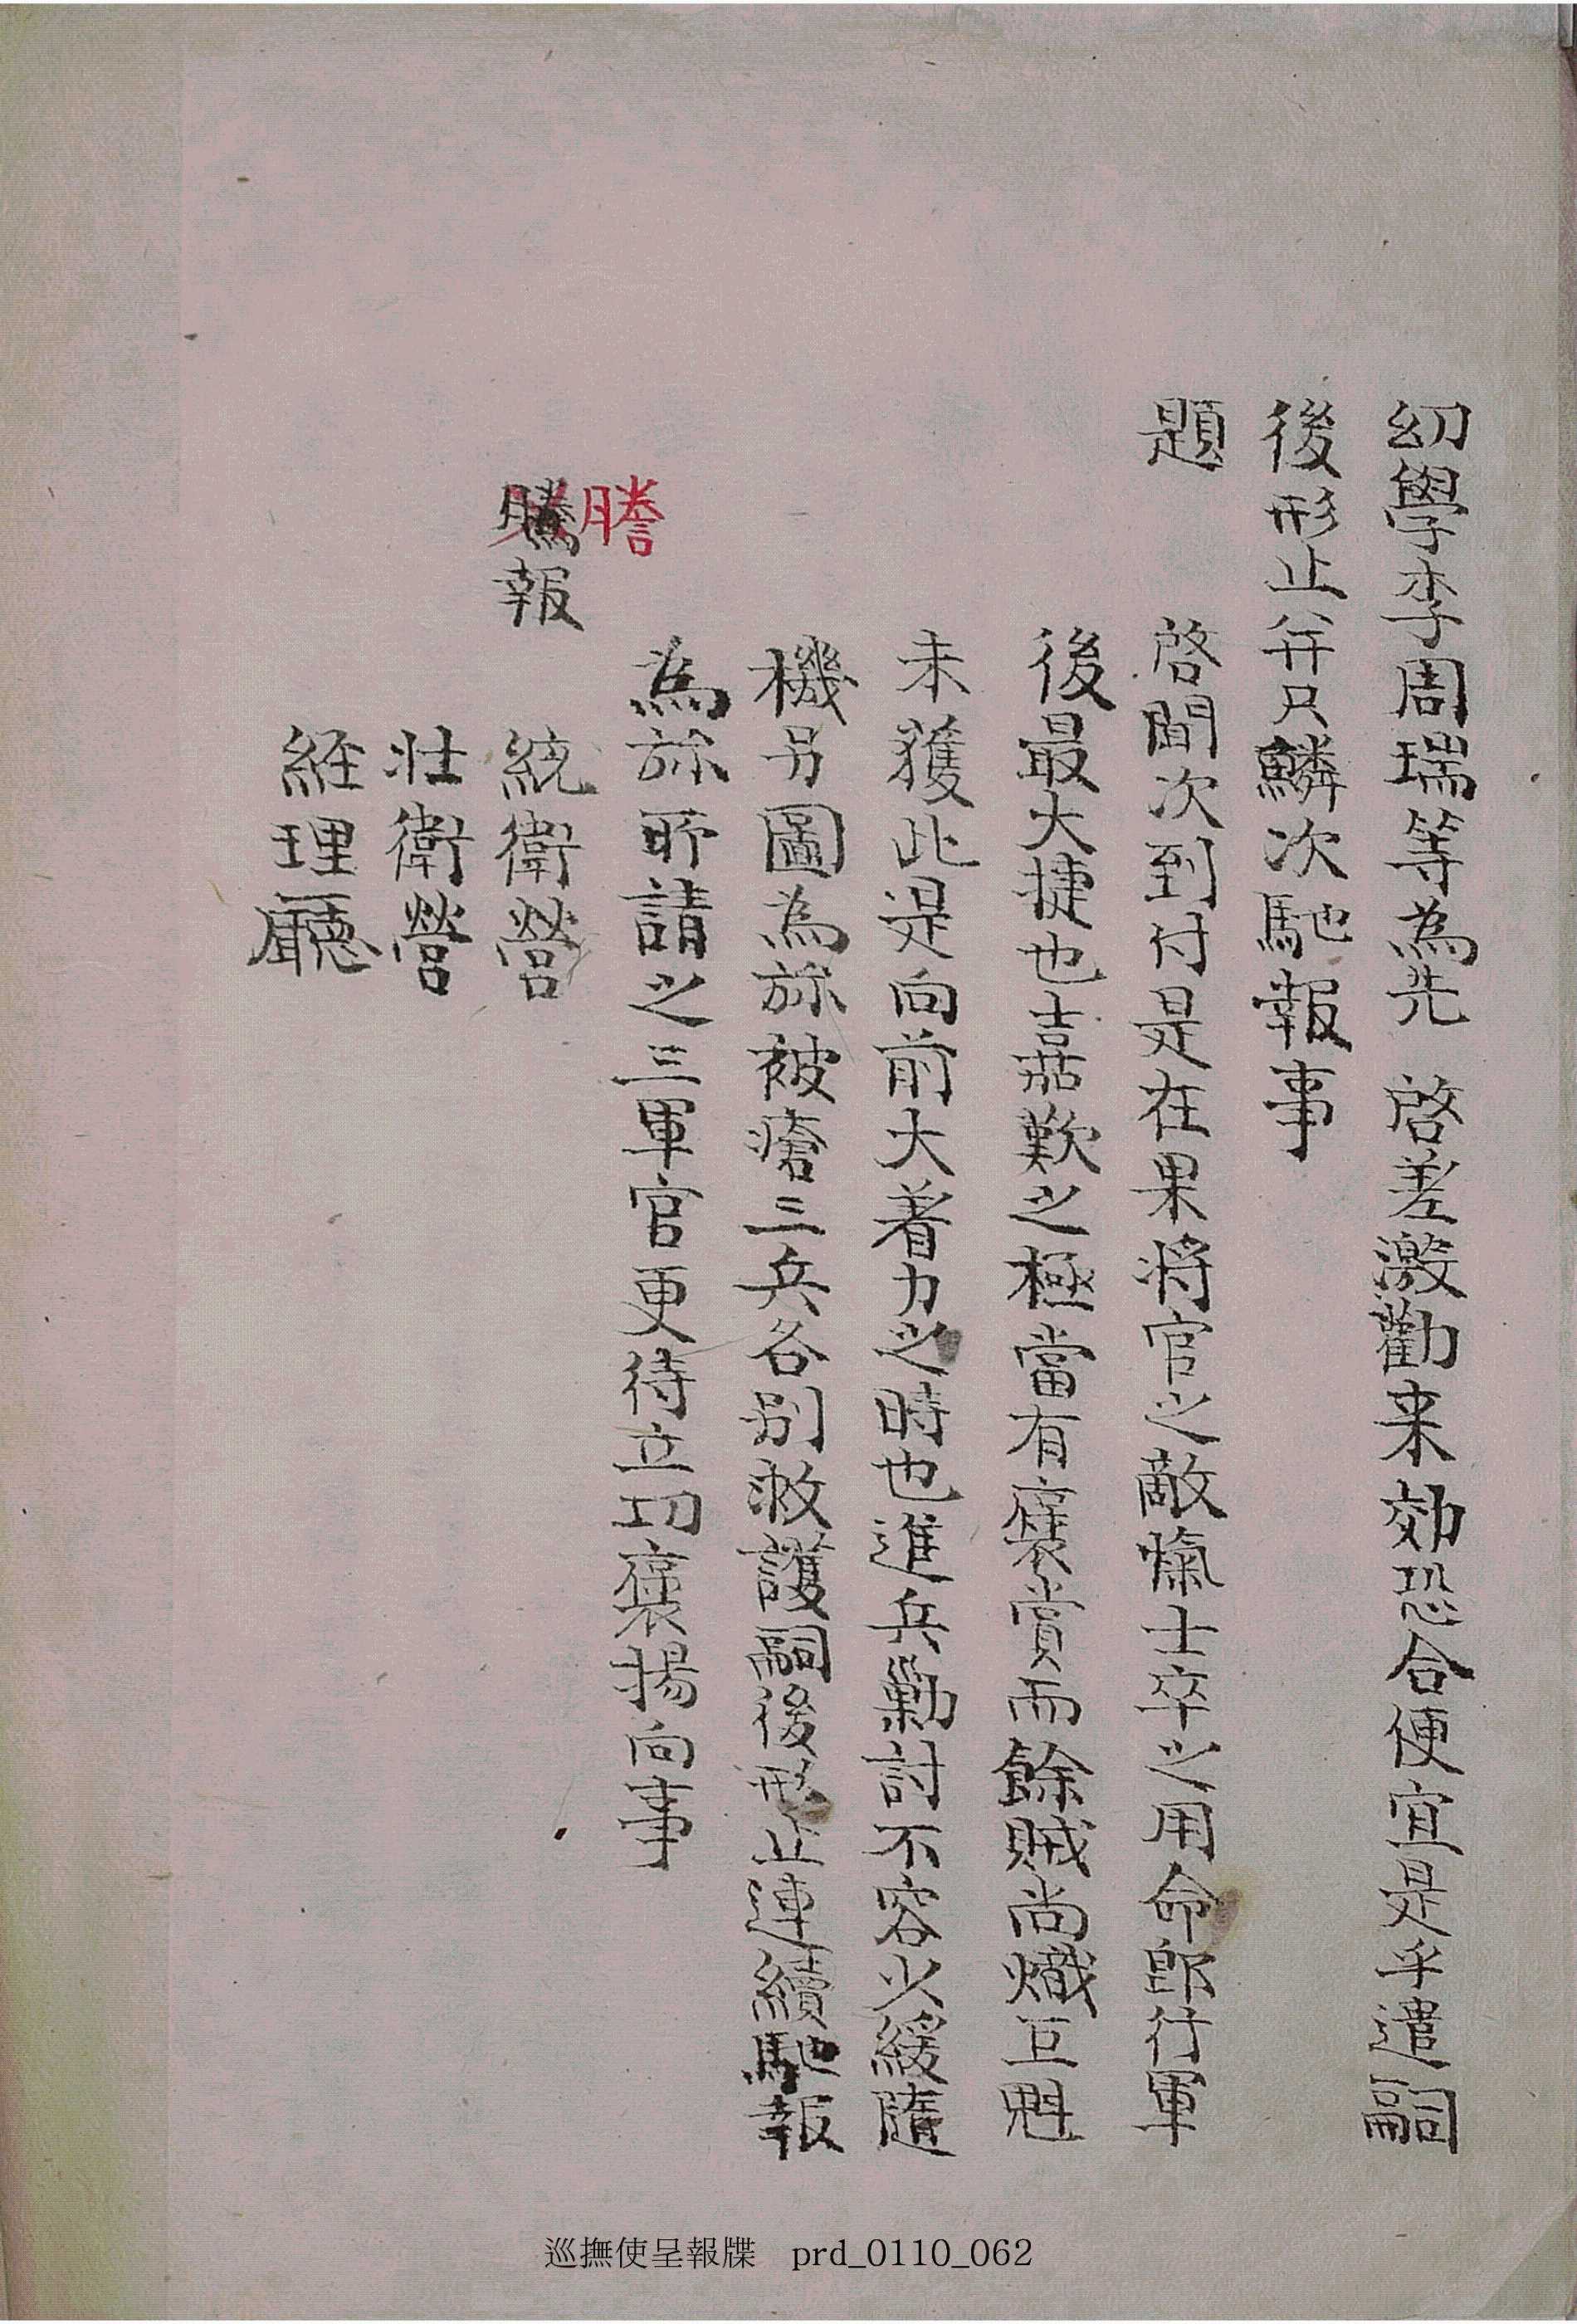 幼學李周瑞等為先 啓差激勸来効恐合便宜是乎遣嗣
後形止幷只鱗次馳報事
題
啓聞次到付是在果將官之敵愾士卒之用命卽行軍
後最大捷也嘉歎之極當有襃賞而餘賊尚熾巨魁
未獲此是向前大着力之時也進兵勦討不容少緩隨
機另圖為旀被瘡三兵各別救護嗣後形止連續馳報
為旀所請之三軍官更待立功襃揚向事
謄
騰報
統衛營
壯衛營
經理廳
巡撫使呈報牒 prd_0110_062